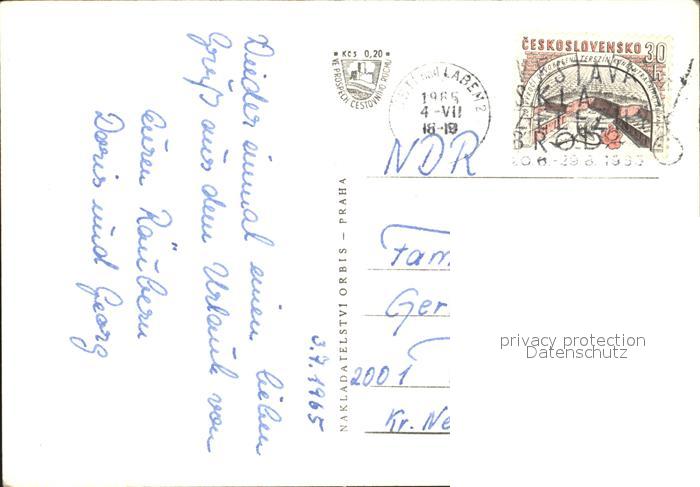 Wieder einmal einen lieben
Gruß aus dem Urlaub von
Euren Räubern
Doris und Georg
3.7.1965
NAKLADATELSTVÍ ORBIS – PRAHA
Kčs 0,20
VE PROSPĚCH CESTOVNÍHO RUCHU
LABEM 2
1965
4.-VII
18-19
ČESKOSLOVENSKO 30
NDR
Fam
Ger
2001
Kr. Ne
privacy protection
Datenschutz